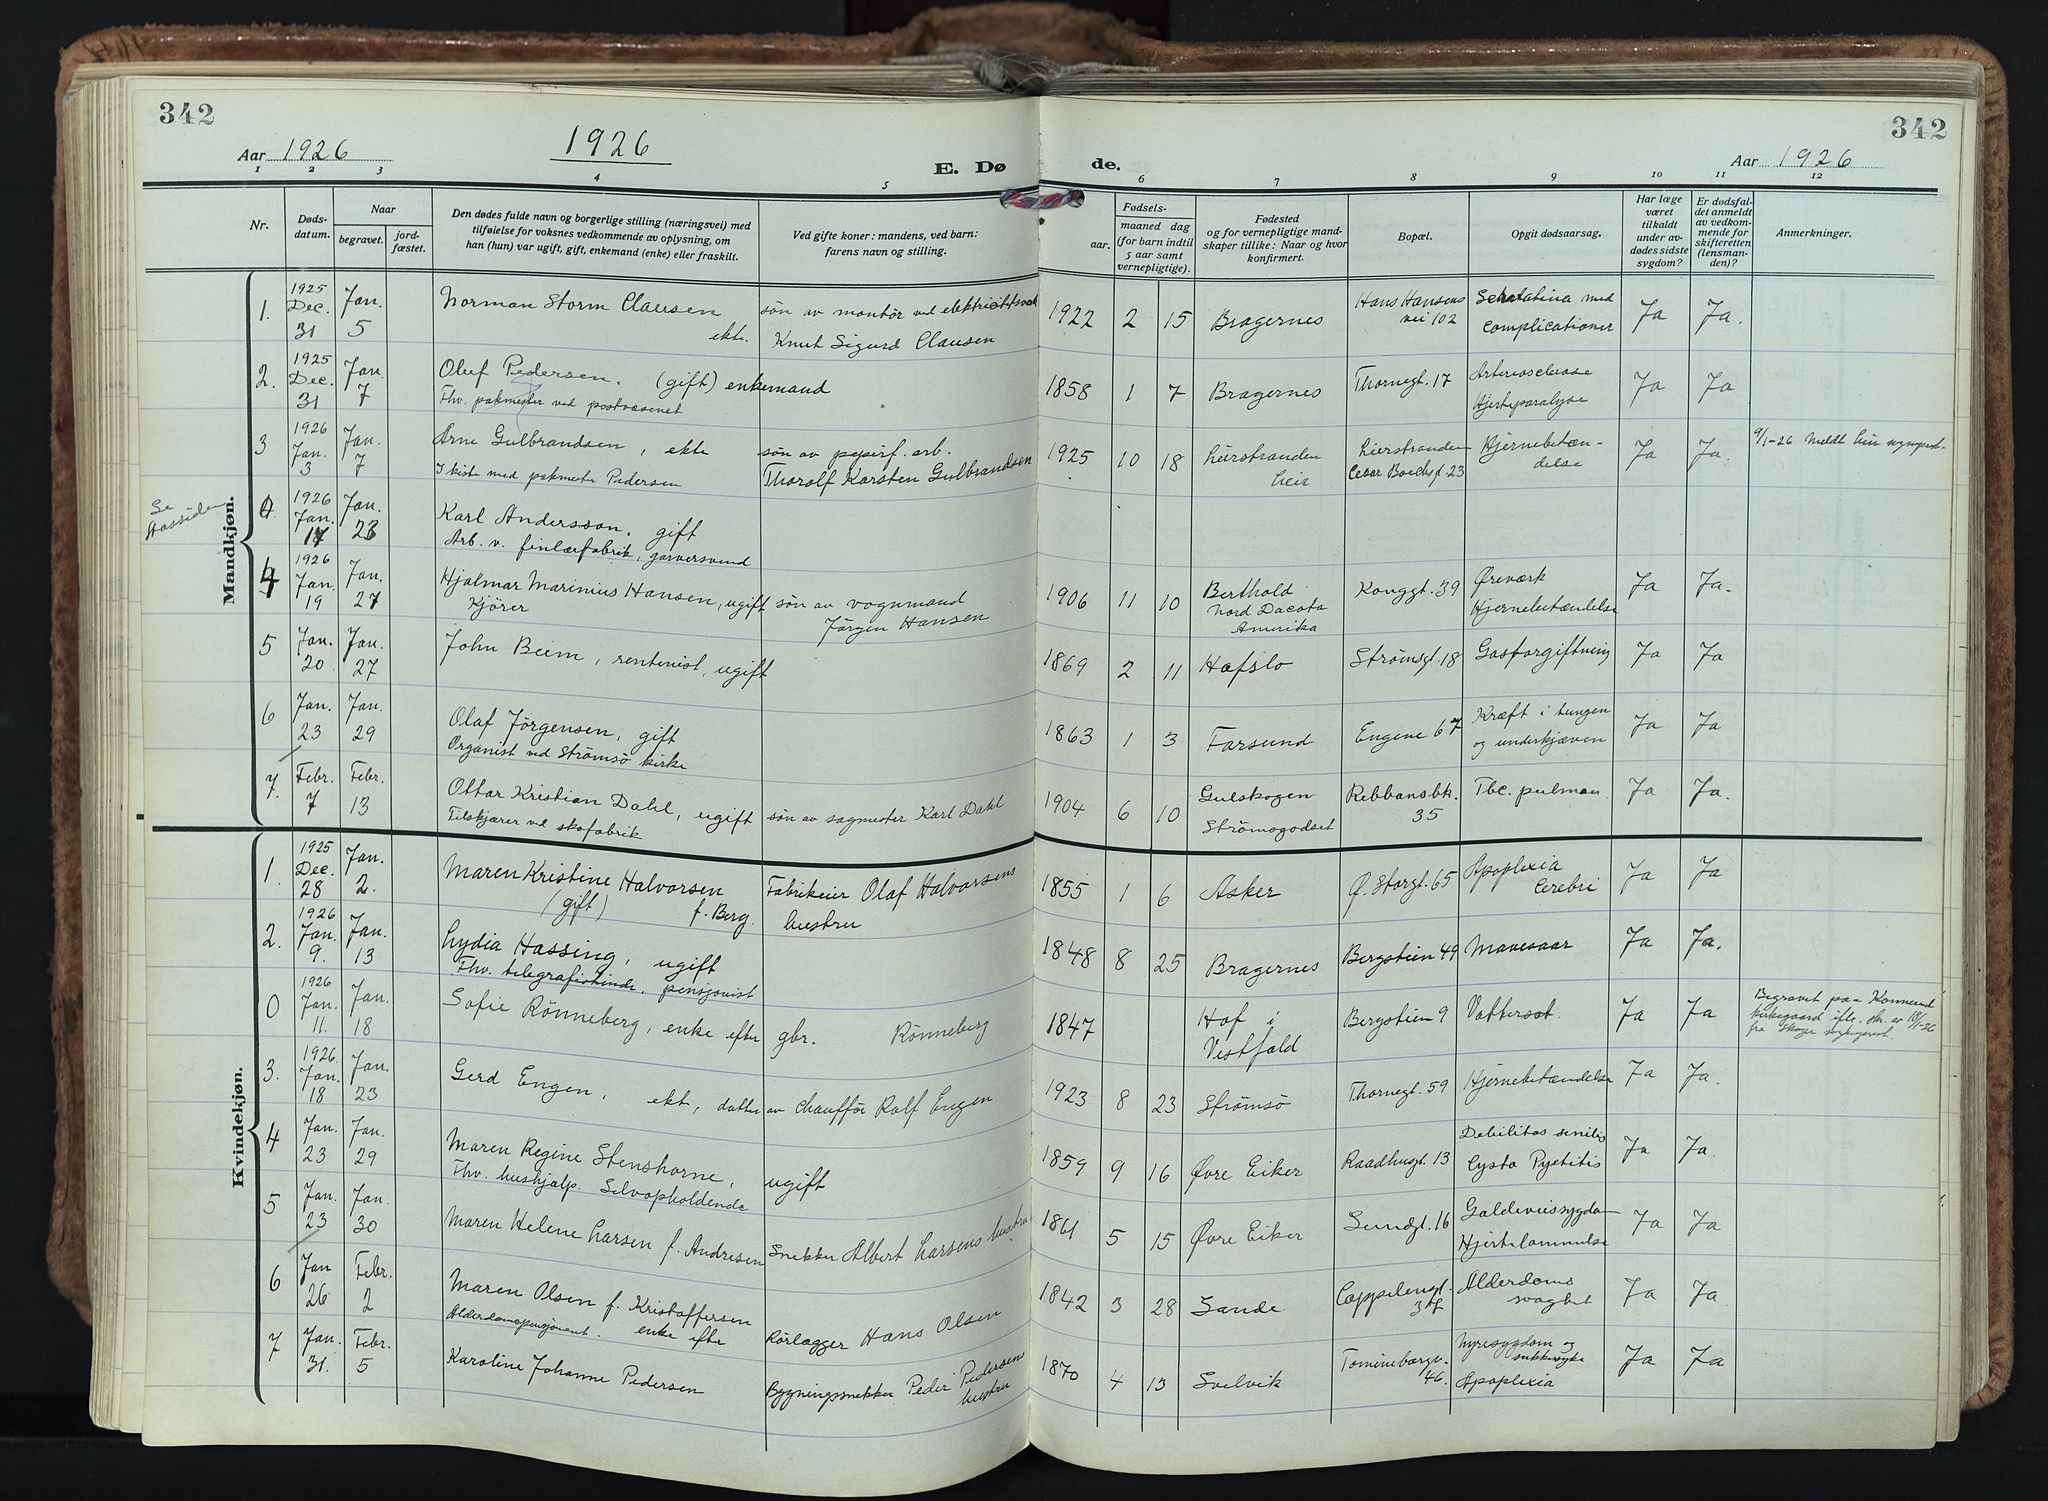 342
342
Aar 1926
1926
E. Dø
de.
Aar 1926
1 2 3 4 5 6 7 8 9 10 11 12
Nr.
Døds-
datum.
Naar
begravet.
jord-
fæstet.
Den dødes fulde navn og borgerlige stilling (næringsvei) med
tilføielse for voksnes vedkommende av oplysning, om
han (hun) var ugift, gift, enkemand (enke) eller fraskilt.
Ved gifte koner: mandens, ved barn:
farens navn og stilling.
Fødsels-
aar.
maaned dag
(for barn indtil
5 aar samt
vernepligtige).
Fødested
og for vernepligtige mand-
skaper tillike: Naar og hvor
konfirmert.
Bopæl.
Opgit dødsaarsag.
Har læge
været
tilkaldt
under av-
dødes sidste
sygdom?
Er dødsfal-
det anmeldt
av vedkom-
mende for
skifteretten
(lensman-
den)?
Anmerkninger.
Mandkjøn.
1. 1925 Dec. 31 Jan. 5 Norman Storm Clausen ekte. søn av montør ved elektricitetsverk
Knut Sigurd Clausen 1922 2 15 Bragernes Hans Hansens
vei 102 Scarlatina med
complicationer Ja Ja.
2. 1925 Dec. 31 Jan. 7 Oluf Pedersen, (gift) enkemand
Fhv. pakmester ved postvæsenet 1858 1 7 Bragernes Thornegt. 17 Arteriosclerose
Hjerteparalyse Ja Ja
3 1926 Jan. 3 Jan. 7 Arne Gulbrandsen, ekte søn av papirf. arb.
I kiste med pakmester Pedersen Thoralf Karsten Gulbrandsen 1925 10 18 Lierstranden
Lier Lierstranden
Hjernebetæn-
delse Ja Ja. 9/1-26 Meldt Lier
Se
Aassiden
1926 Jan. 17 Jan. 23 Karl Andersson, gift
Arb. v. finlærfabrik, garversvend
4 1926 Jan. 19 Jan. 27 Hjalmar Marinius Hansen, ugift søn av vognmand
Kjører Jørgen Hansen 1906 11 10 Berthold
Nord Dacota
Amerika Konggt. 39 Øreværk
Hjernebetændelse Ja Ja.
5 Jan. 20. Jan. 27 John Beim, rentenist, ugift 1869 2 11 Hafslo Strømsgt. 18 Gasforgiftning Ja Ja
6 Jan. 23 Jan. 29 Olaf Jørgensen, gift
Organist ved Strømsø kirke 1863 1 3 Farsund Engene 67 Kræft i tungen
og underkjæven Ja Ja
7. Febr. 7 Febr. 13 Ottar Kristian Dahl, ugift søn av sagmester Karl Dahl
Tilskjærer ved skofabrik 1904 6 10 Gulskogen
Strømsgodset Rebbansbk.
35 Tbc. pulmon. Ja Ja.
Kvindekjøn.
1. 1925 Dec. 28 Jan. 2. Maren Kristine Halvorsen
(gift) f. Berg. Fabrikeier Olaf Halvorsens
hustru 1855 1 6 Asker Ø. Storgt. 65 Apoplexia
Cerebri Ja Ja
2. 1926 Jan. 9. Jan. 13 Lydia Hassing, ugift
Fhv. telegrafistinde, pensjonist 1848 8 25 Bragernes Bergstien 49 Mavesaar Ja Ja.
0 1926 Jan. 11. Jan. 18 Sofie Rønneberg, enke efter gbr. Rønneberg 1847 Hof i
Vestfold Bergstien 9 Vattersot. Ja Ja Begravet paa Konnerud
kirkegaard ifl. skr. av 18/1-26
fra Skoger sogneprest.
3. 1926. Jan. 18 Jan. 23 Gerd Engen, ekt, datter av chauffør Rolf Engen 1923 8 23 Strømsø Thornegt. 59 Hjernebetændelse Ja Ja.
4 Jan. 23 Jan. 29 Maren Regine Stenshorne, ugift
Fhv. hushjælp. Selvopholdende 1859 9 16 Øvre Eiker Raadhusgt. 13 Debilitas senilis
Cysto Pyetitis Ja Ja.
5 Jan. 23 Jan. 30 Maren Helene Larsen f. Andresen Snekker Albert Larsens hustru 1861 5 15 Øvre Eiker Sundgt. 16 Galdeveissygdom
Hjertelammelse Ja Ja
6 Jan 26 Febr. 2 Maren Olsen f. Kristoffersen
Alderdomspensjonist. enke efter Rørlægger Hans Olsen 1842 3 28 Sande Cappelensgt. Alderdoms
svaghet Ja Ja
7 Jan. 31. Febr. 5 Karoline Johanne Pedersen Bygningssnekker Peder Pedersens
hustru 1870 4 13 Svelvik Tominebørgs-
46. Nyresygdom og
sukkersyke
Apoplexia Ja Ja